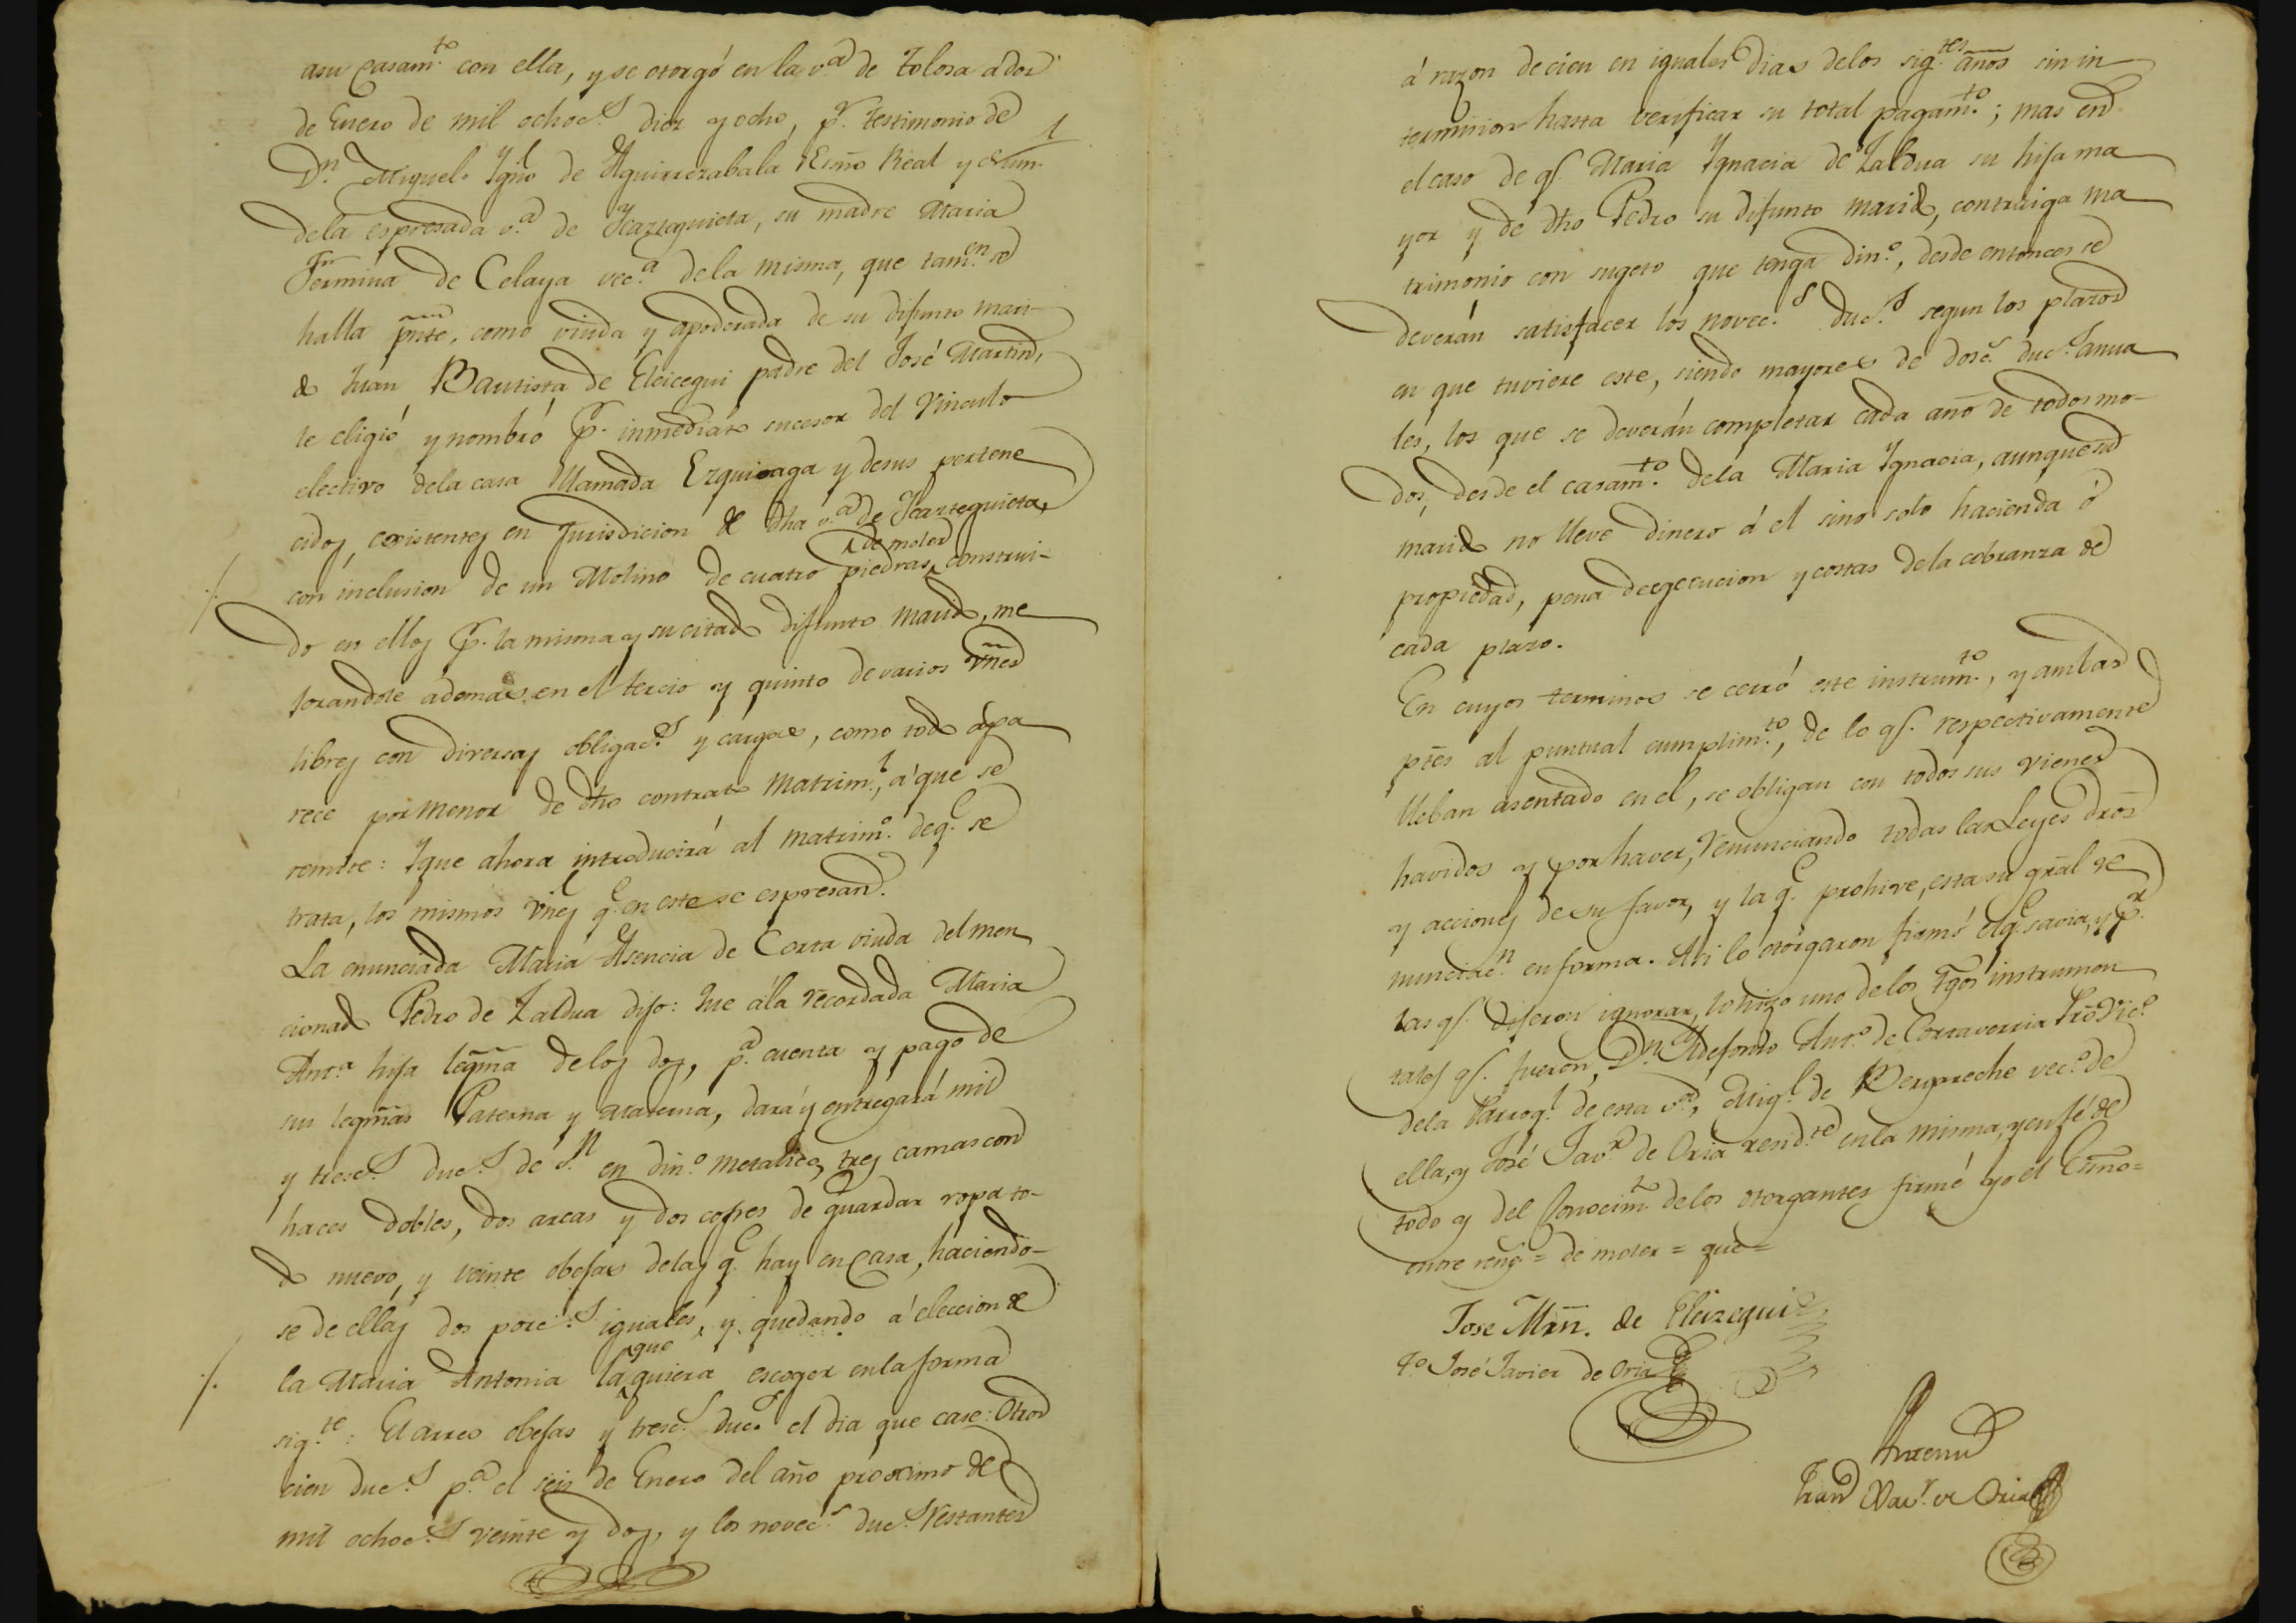 asu casam.to con ella, y se otorgó en la v.a de Tolosa a dos
de Enero de mil ochoc.s diez y ocho, p.r testimonio de
D.n Miguel Ygn.o de Aguirrezabala Esño Real y Num.l
dela espresada v.a de Ycazteguieta, su madre Maria
Fermina de Celaya vec.a dela misma, que tam.en se
halla pnte, como viuda y apoderada de su difunto mari-
do Juan Bautista de Eleicegui padre del José Martin,
le eligió y nombró p.r inmediato sucesor del Vinculo
electivo dela casa llamada Ezquioaga y desus pertene
cidos, existentes en Jurisdicion de dha v.a de Ycazteguieta,
con inclusion de un Molino de cuatro piedras de moler construi-
do en ellos p.r la misma y su citado difunto marido, me
jorandole ademas en el tercio y quinto de varios vnes
libres con diversas obligac.s y cargas, como todo apa
rece por menor de dho contrato matrim.l, á que se
remite: Yque ahora introducirá al matrim.o de q.e se
trata, los mismos vnes q.e en este se espresan.
La enunciada Maria Asencia de Corta viuda del men
cionado Pedro de Zaldua dijo: Que á la recordada Maria
Ant.a hija legma delos dos, p.a cuenta y pago de
sus legmas Paterna y Materna, dará y entregará mil
y tresc.s duc.s de v.n en din.o metalico, tres camas con
haces dobles, dos arcas y dos cofres de guardar ropa to-
do nuevo, y veinte obejas delas q.e hay en casa, haciendo-
se de ellas dos porc.s iguales, y quedando á eleccion de
la Maria Antonia la que quiera escoger en la forma
sig.te: El arreo obejas y tresc.s duc.s el dia que case: Otros
cien duc.s p.a el seis de Enero del año procsimo de
mil ochoc.s veinte y dos, y los novec.s duc.s restantes
á razon de cien en iguales dias delos sig.tes años sin in
termision hasta verificar su total pagam.to; mas en
el caso de q.e Maria Ygnacia de Zaldua su hija ma
yor y de dho Pedro su difunto marido, contraiga ma
trimonio con sugeto que tenga din.o, desde entonces se
deverán satisfacer los novec.s duc.s segun los plazos
en que tuviere este, siendo mayores de dosc.s duc.s anua
les, los que se deverán completar cada año de todos mo-
dos, desde el casam.to dela Maria Ygnacia, aunque su
marido no lleve dinero á el sino solo hacienda ó
propiedad, pena de egecucion y costas dela cobranza de
cada plazo.
En cuyos terminos se cerró este instrum.to, y ambas
ptes al puntual cumplim.to, de lo q.e respectivamente
lleban asentado en el, se obligan con todos sus vienes
havidos y por haver, renunciando todas las Leyes dros
y acciones de su favor, y la q.e prohive, esta su gral re
nunciac.n en forma. Asi lo otorgaron firmó el q.e savia, y p.r
las q.e dijeron ignorar, lo hizo uno de los tgos instrumen
tales q.e fueron, D.n Yldefonso Ant.o de Cortaverria Pro Vic.o
dela Parroq.l de esta v.a, Mig.l de Berguereche vec.o de
ella, y José Jav.r de Oria resid.te en la misma, y en fé de
todo y del Conocim.to delos otorgantes firmé yo el Esno=
entre reng.s = de moler = que =
Jose Mrn. de Eleizegui
T.o José Javier de Oria
Antemi
Fran.co Xav.r de Oria